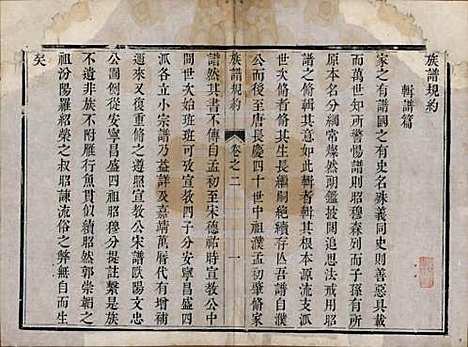 族譜規約
輯譜篇
家之有譜國之有史名殊義同史則善惡具載
而萬世知所警惕譜則昭穆森列而子孫有所
原本名分綱常燦然期鑑披圖溯源思法戒用昭
譜之脩輯其意如此輯者輯其根本源流支派
世次脩者脩其生長繼嗣絶續存亾吾譜自濮
公而後至唐長慶四十世中祖濮孟初肇脩家
族譜規約
卷之二
一
譜然其書不傳自孟初至宋德祐時宣教公中
間世次始班班可攷宣教四子分安寧昌盛四
派各立小宗譜乃益詳及嘉靖萬厯代有增補
迨來又復重脩之遵照宣教公譜趺陽文定
公圖例從安寧昌盛四祖昭穆分提註發是族
不遺非族不附雁行魚貫似續昭然郭崇韜之
祖汾陽羅紹榮之叔昭諫流俗之弊無自而生
矣